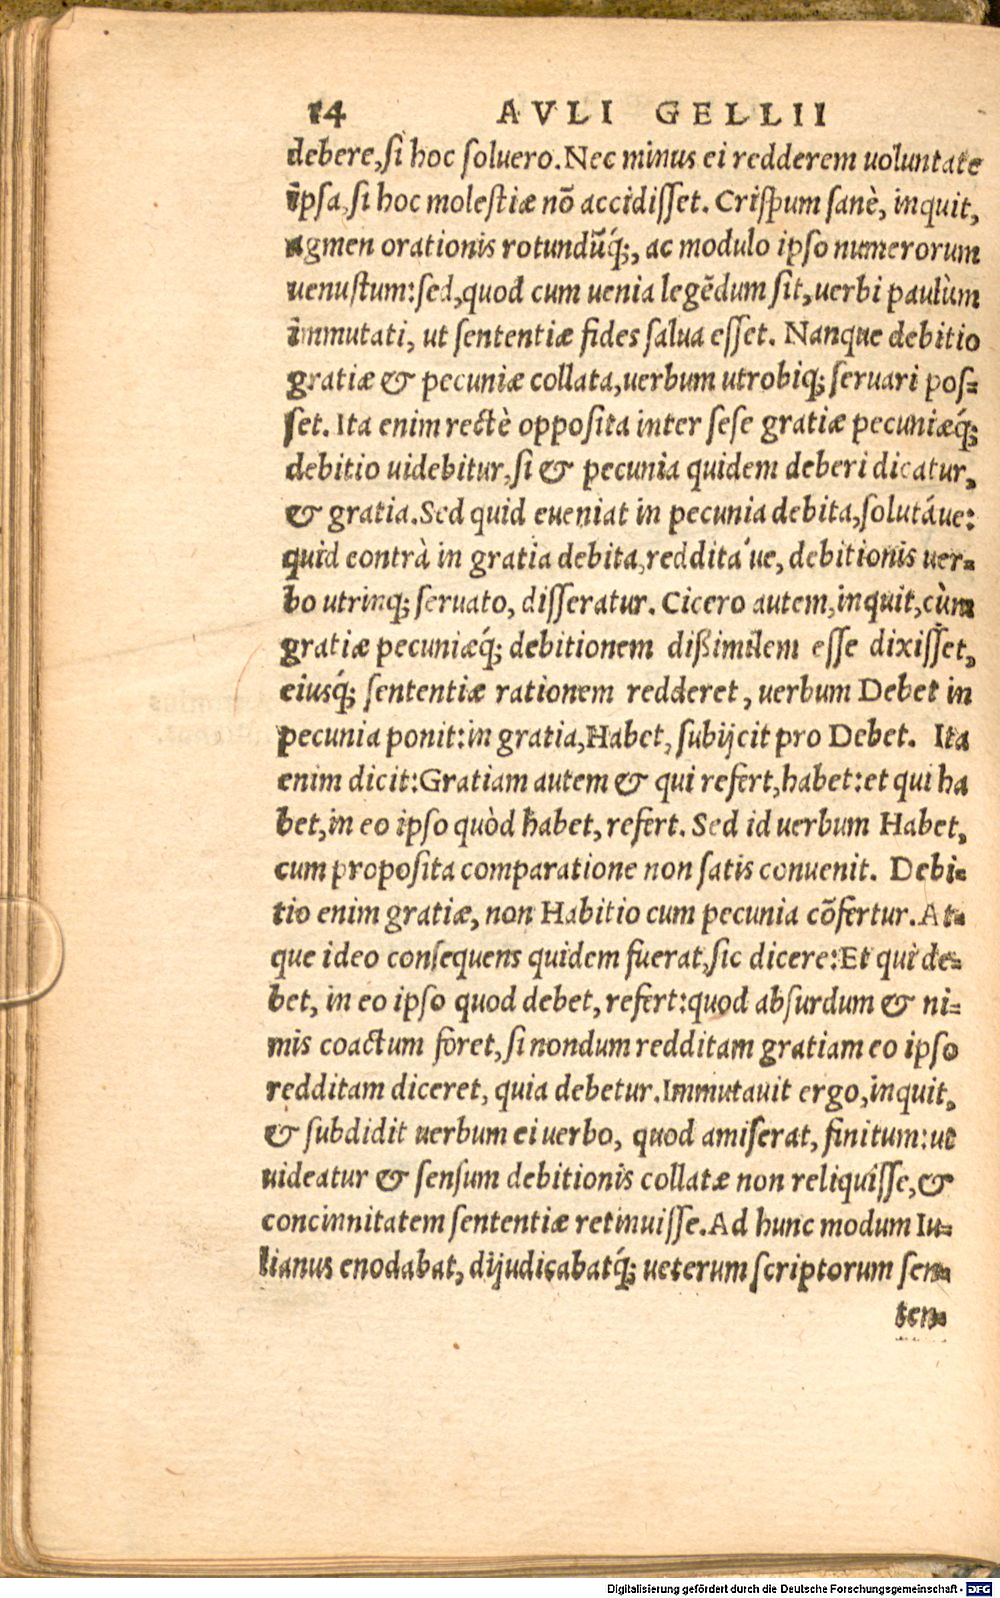 14 AVLI GELLII
debere, si hoc soluero. Nec minus ei redderem uoluntate
ipsa, si hoc molestiæ nõ accidisset. Crispum sanè, inquit,
agmen orationis rotundũq́;, ac modulo ipso numerorum
uenustum: sed, quod cum uenia legẽdum sit, uerbi paulùm
immutati, ut sententiæ fides salua esset. Nanque debitio
gratiæ & pecuniæ collata, uerbum utrobiq; seruari pos-
set. Ita enim rectè opposita inter sese gratiæ pecuniæq́;
debitio uidebitur, si & pecunia quidem deberi dicatur,
& gratia. Sed quid eueniat in pecunia debita, solutáue:
quid contrà in gratia debita, reddita´ue, debitionis uer-
bo utrinq; seruato, disseratur. Cicero autem, inquit, cùm
gratiæ pecuniæq́; debitionem dißimilem esse dixisset,
eiusq́; sententiæ rationem redderet, uerbum Debet in
pecunia ponit: in gratia, Habet, subijcit pro Debet. Ita
enim dicit: Gratiam autem & qui refert, habet: et qui ha
bet, in eo ipso quòd habet, refert. Sed id uerbum Habet,
cum proposita comparatione non satis conuenit. Debi-
tio enim gratiæ, non Habitio cum pecunia cõfertur. At-
que ideo consequens quidem fuerat, sic dicere: Et qui de-
bet, in eo ipso quod debet, refert: quod absurdum & ni-
mis coactum foret, si nondum redditam gratiam eo ipso
redditam diceret, quia debetur. Immutauit ergo, inquit,
& subdidit uerbum ei uerbo, quod amiserat, finitum: ut
uideatur & sensum debitionis collatæ non reliquisse, &
concinnitatem sententiæ retinuisse. Ad hunc modum Iu-
lianus enodabat, dijudicabatq́; ueterum scriptorum sen-
ten-
Digitalisierung gefördert durch die Deutsche Forschungsgemeinschaft - DFG